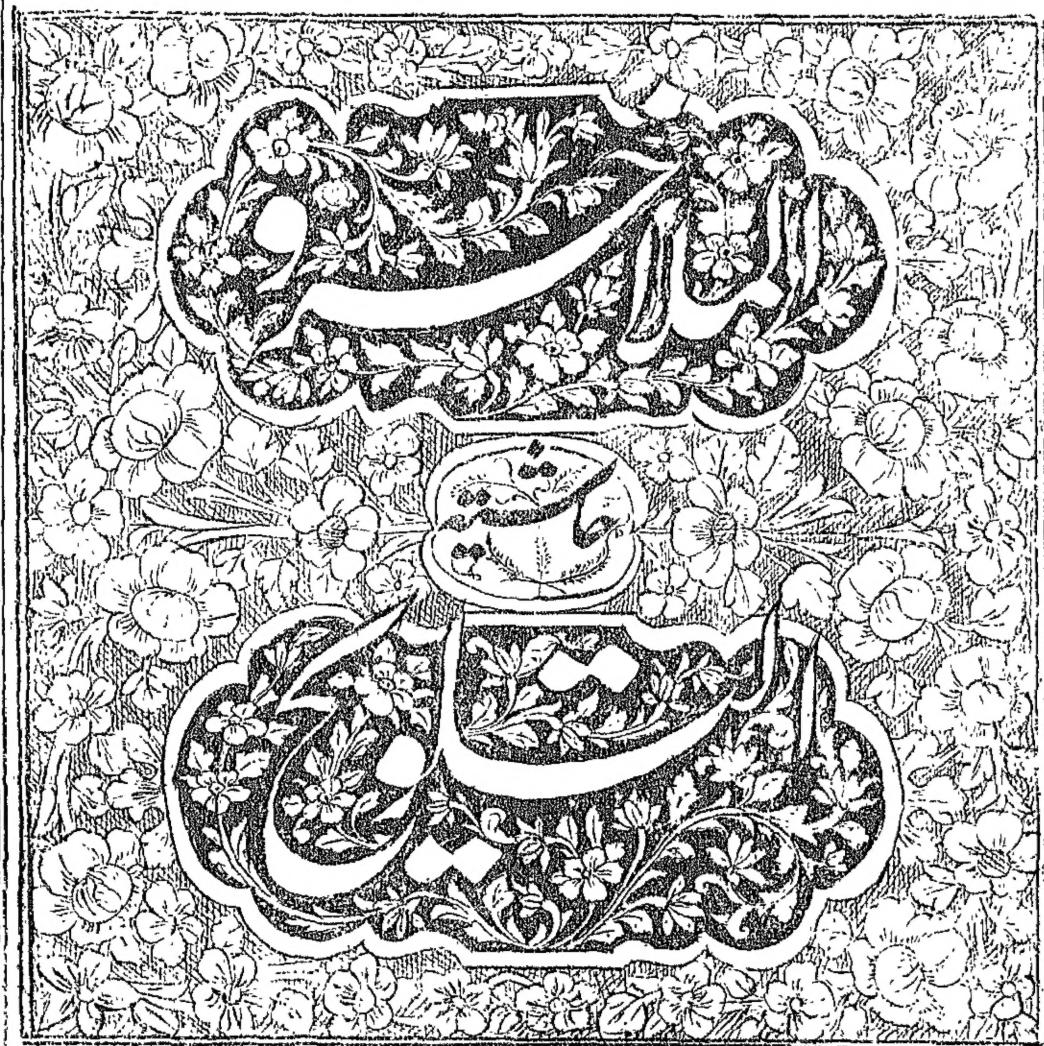 الملاخسرو
حاشية
التلويح